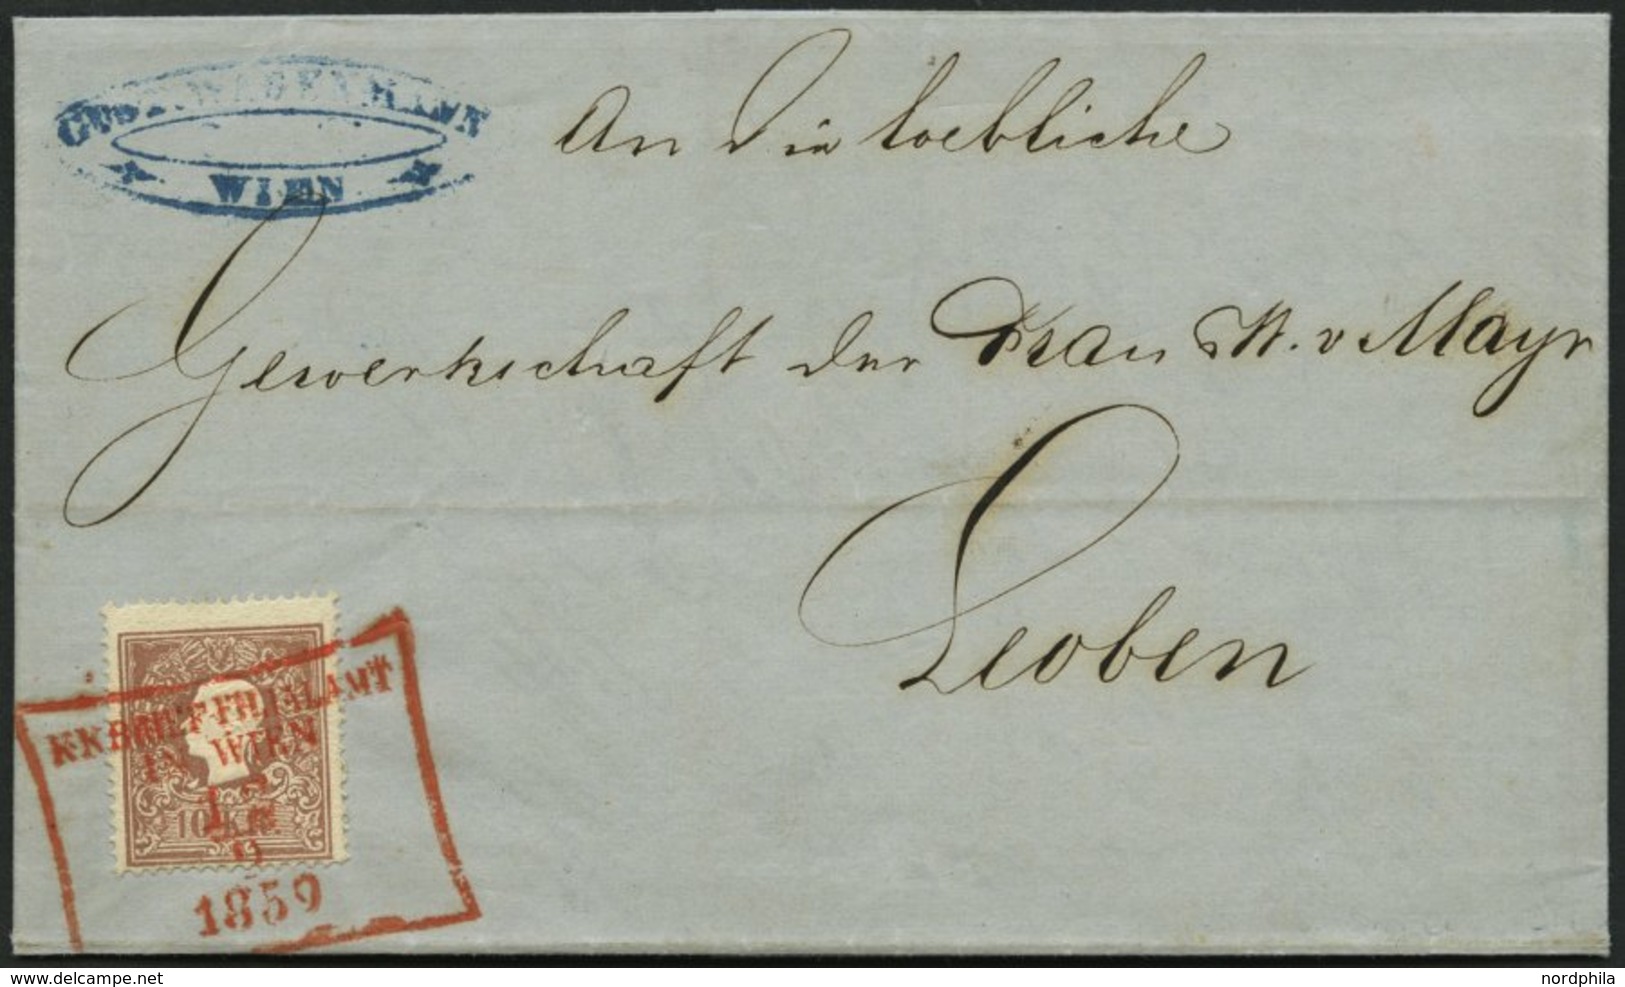 WIEN
An Die loebliche
Gewerkschaft der Frau M. v Mayr
Leoben
K.K.BRIEF-FILIALAMT
IN WIEN
12
9
1859
10 Kr.
delcampe.net
nordphila